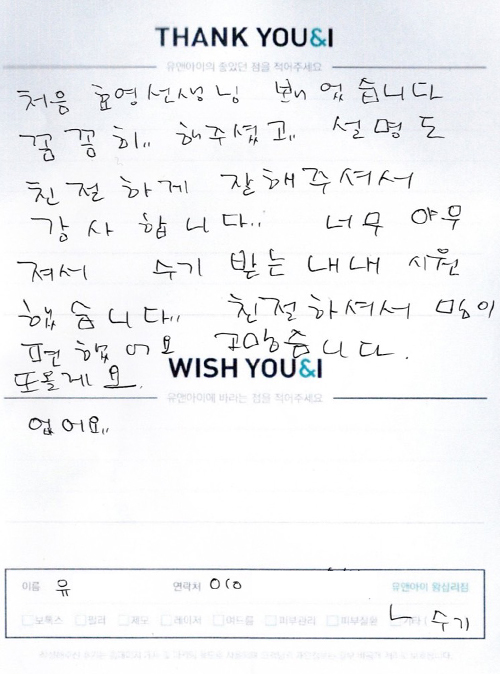 THANK YOU&I
유앤아이의 좋았던 점을 적어주세요
처음 효영선생님 봬었습니다
꼼꼼히.. 해주셨고.. 설명도
친절하게 잘해주셔서
감사합니다.. 너무 야무
져서 수기 받는내내 시원
했습니다.. 친절하셔서 맘이
편했어요 고맙습니다.
또올게요.
WISH YOU&I
유앤아이에 바라는 점을 적어주세요
없어요..
이름 유 연락처 010 유앤아이 왕십리점
보톡스 필러 제모 레이저 여드름 피부관리 피부질환 기타 ( 수기